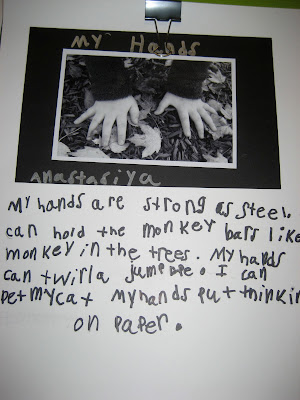 My Hands
anastasiya
My hands are strong as steel.
can hold the monkey bars like
monkey in the trees. My hands
can twirl a jump . I can
pet my cat My hands put thinkin
on paper.